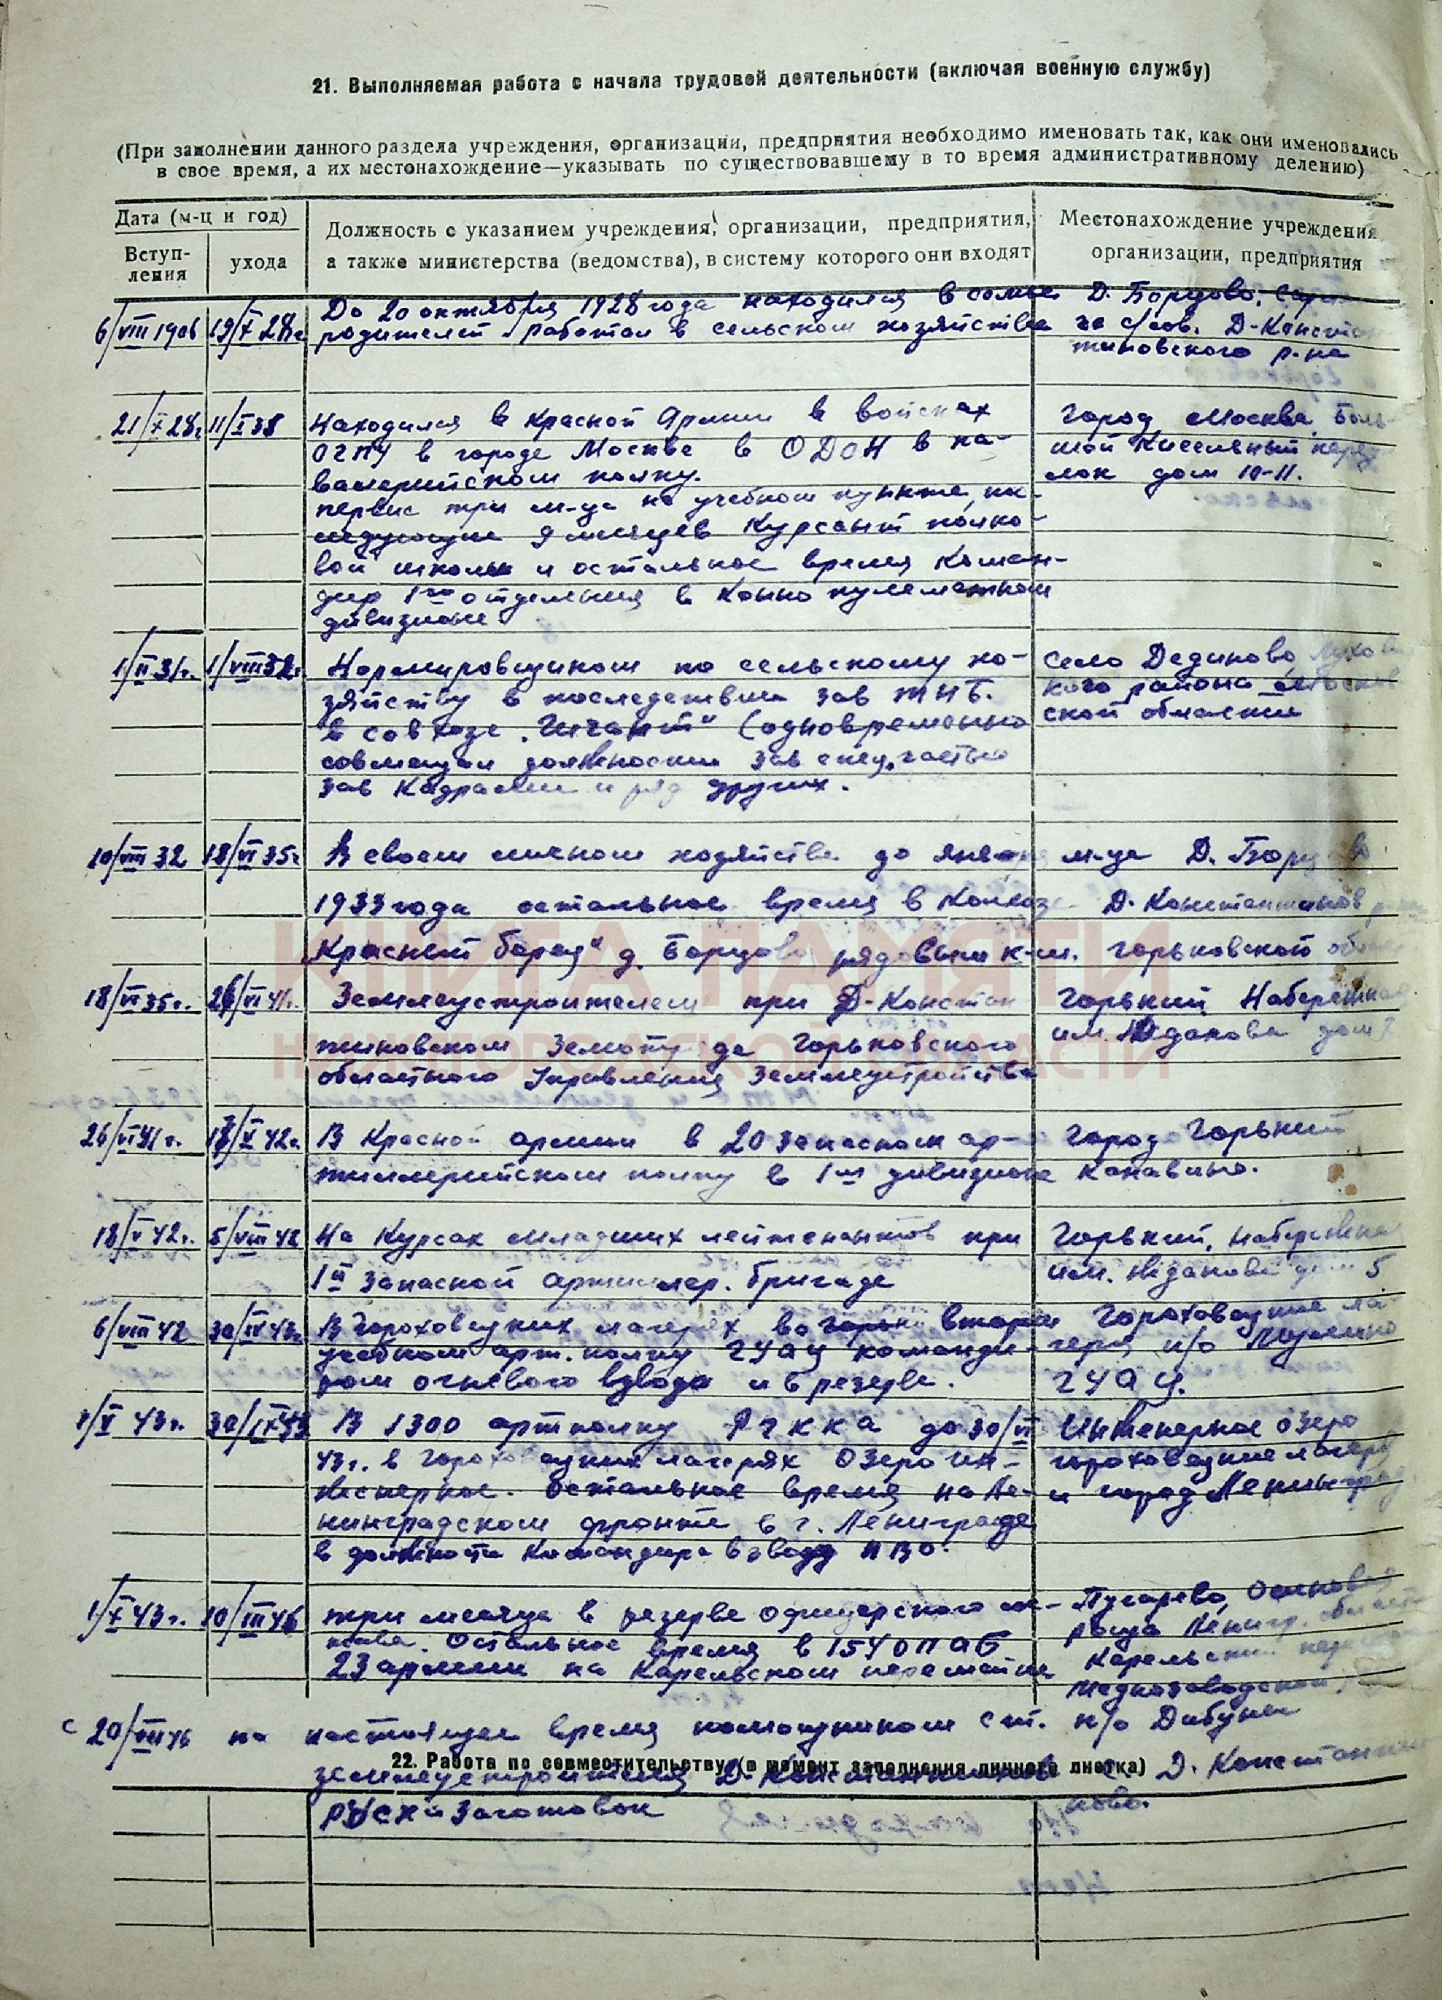 21. Выполняемая работа с начала трудовой деятельности (включая военную службу)
(При заполнении данного раздела учреждения, организации, предприятия необходимо именовать так, как они именовались
в свое время, а их местонахождение—указывать по существовавшему в то время административному делению)
Дата (м-ц и год)
Вступ-
ления
ухода
Должность с указанием учреждения, организации, предприятия,
а также министерства (ведомства), в систему которого они входят
Местонахождение учреждения
организации, предприятия
6/VIII 1906 19/X 28г.
До 20 октября 1928 года находился в семье
родителей работал в сельском хозяйстве
Д. Борцово,
с/сов. Д-Конста
тиновского р-на
21/X 28г. 11/I 31
Находился в Красной Армии в войсках
ОГПУ в городе Москве в ОДОН в ка-
валерийском полку.
первые три м-ца на учебном пункте, по-
следующие 9 месяцев Курсант полко-
вой школы и остальное время Коман-
дир 1го отделения в Конно пулеметном
дивизионе
Город Москва, Боль-
шой Кисельный переу
лок дом 10-11.
1/II 31г. 1/VIII 32г.
Нормировщиком по сельскому хо-
зяйству в последствии зав ТНБ.
в совхозе „Гигант" (одновременно
совмещал должности зав спец.частью
зав Кадрами и ряд других.
село Дединово
кого района Москов
ской области
10/VIII 32 18/VI 35г
В своем личном хозяйстве до января м-ца
1933 года остальное время в Колхозе
„Красный борец" д. Борцово рядовым к-ом.
Д. Борцово
Д-Константинов
Горьковской обла
18/VI 35г. 26/VI 41г.
Землеустроителем при Д-Констан
тиновском Земотделе Горьковского
областного Управления Землеустройства
Горький Набережная
им. Жданова дом
26/VI 41г. 18/V 42г.
В Красной армии в 20 запасном ар-
тиллерийском полку в 1м дивизионе
Город Горький
Канавино.
18/V 42г. 5/VIII 42
На Курсах Младших лейтенантов при
1й Запасной артиллер. бригаде
Горький, Набережная
им. Жданова дом 5
6/VIII 42 30/IV 43г.
В Гороховецких лагерях во втором
учебном арт. полку ГУАЦ команди-
ром огневого взвода и в резерве.
Гороховецкие ла-
геря п/о
ГУАЦ.
1/V 43г. 30/IX 43
В 1300 артполку РГКка до 30/VI
43г. в Гороховецких лагерях Озеро Ин-
женерное. остальное время на Ле-
нинградском фронте в г. Ленинграде
в должности Командира взвода ПВО.
Инженерное озеро
Гороховецкие лагеря
и город Ленинград
1/X 43г. 10/III 46
три месяца в резерве офицерского со-
става. Остальное время в 154 ОПАБ
23 армии на Карельском перешейке
Пугарево, Осиновая
роща Ленингр. област
Карельский переш
Меднозаводской,
п/о Дибуны
с 20/VII 46 по настоящее время помощником ст.
землеустроителя Д-Константиновс
Д. Константи
ново.
22. Работа по совместительству (в момент заполнения личного листка)
РУСХ и Заготовок
КНИГА ПАМЯТИ
НИЖЕГОРОДСКОЙ ОБЛАСТИ